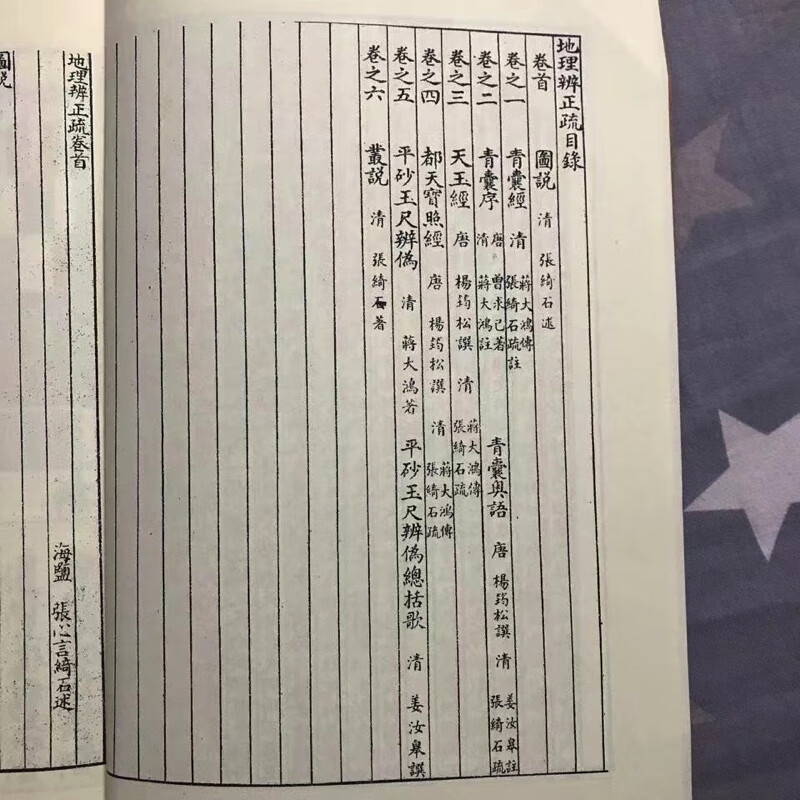 地理辨正疏目錄
卷首 圖說 清 張綺石述
卷之一 青囊經 清 蔣大鴻傳 張綺石疏註
卷之二 青囊序 唐 曾求己著 清 蔣大鴻註 青囊奧語 唐 楊筠松譔 清 姜汝皋註 張綺石疏
卷之三 天玉經 唐 楊筠松譔 清 蔣大鴻傳 張綺石疏
卷之四 都天寶照經 唐 楊筠松譔 清 蔣大鴻傳 張綺石疏
卷之五 平砂玉尺辨偽 清 蔣大鴻著 平砂玉尺辨偽總括歌 清 姜汝皋譔
卷之六 叢說 清 張綺石著
地理辨正疏卷首
海鹽 張心言綺石述
圖說